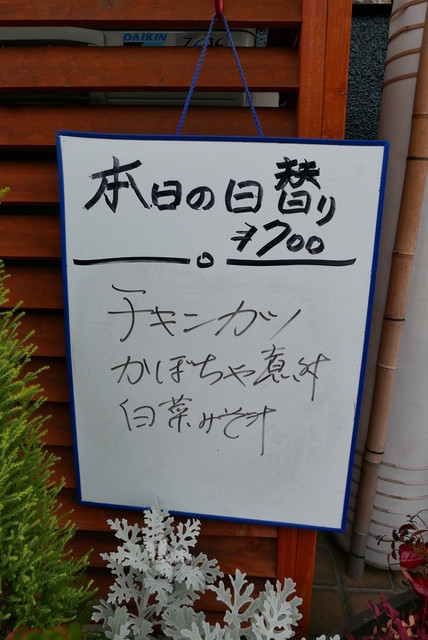 DAIKIN
本日の日替り
¥700
チキンカツ
かぼちゃ煮
白菜みそ汁